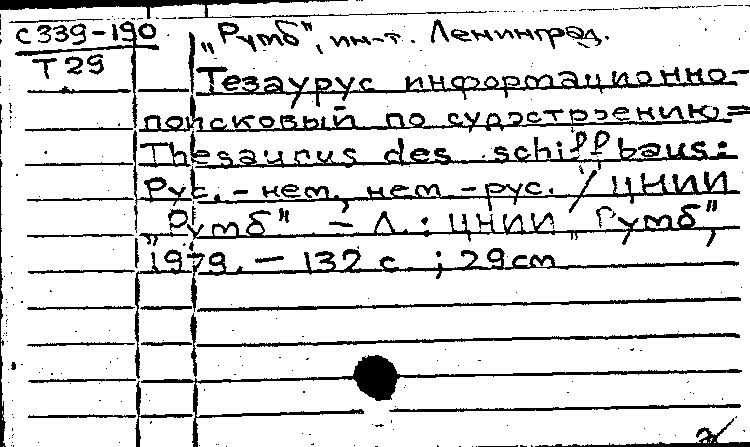 С339-190
Т29
„Румб", ин-т. Ленинград.
Тезаурус информационно-
поисковый по судостроению =
Thesaurus des schiffbaus:
Рус.-нем, нем-рус. / ЦНИИ
„Румб" – Л.: ЦНИИ „Румб",
1979. – 132 с ; 29см